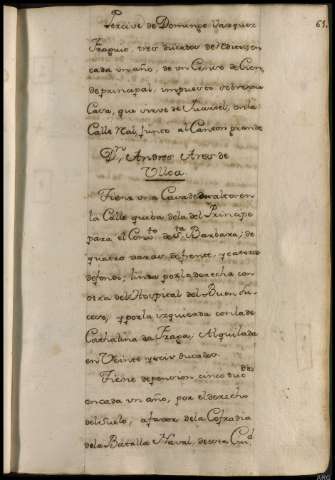 Percive de Domingo Vazquez
61.
Trapio, tres ducados de Vellon, en
cada un año, de un Censo de Cien,
de principal, impuesto sobre una
Casa, que sirve de Quartel, en la
Calle Real, junto al Canton grande
Dn. Andres Ares de
Ulloa
Tiene una Casa de un alto en
la Calle que ba de la del Principe
para el Convto. de Sta. Barbara; de
quatro varas de frente, y catorce
de fondo; linda por la derecha con
otra del Hospital del Buen Su
ceso, y por la izquierda con la de
Cathalina da Fraga; Alquilada
en Veinte y seis ducados
Tiene de pension cinco ducdos.
en cada un año, por el derecho
del suelo, a favor de la Cofradia
de la Batalla Naval, de esta Ciud.